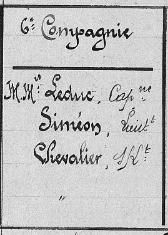 6e Compagnie
M.Mrs Leduc, Capne
Siméon, Lieutt
Chevalier, s/Lt
"